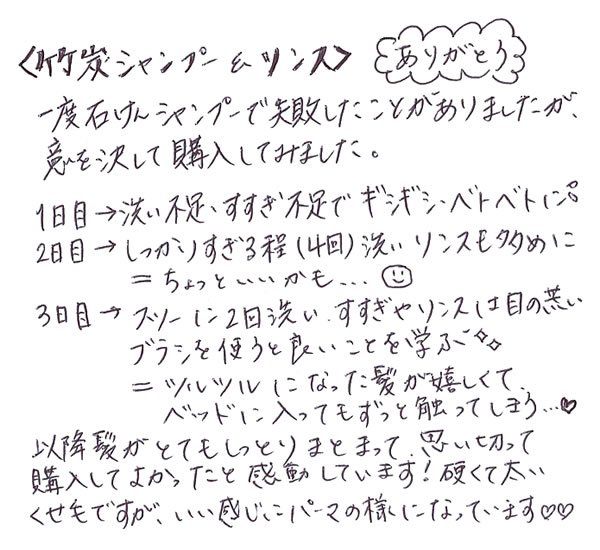 〈竹炭シャンプー & リンス〉 ありがとう
一度石けんシャンプーで失敗したことがありましたが、
意を決して購入してみました。
1日目→洗い不足、すすぎ不足で ギシギシ・ベトベトに。
2日目→しっかりすぎる程(4回)洗い リンスも多めに
=ちょっといいかも…☺
3日目→フツーに2回洗い、すすぎやリンスは目の荒い
ブラシを使うと良いことを学ぶ✧✧
=ツルツルになった髪が嬉しくて、
ベッドに入ってもずっと触ってしまう…♥
以降髪がとてもしっとりまとまって、思い切って
購入してよかったと感動しています!硬くて太い
くせ毛ですが、いい感じにパーマの様になっています♡♡